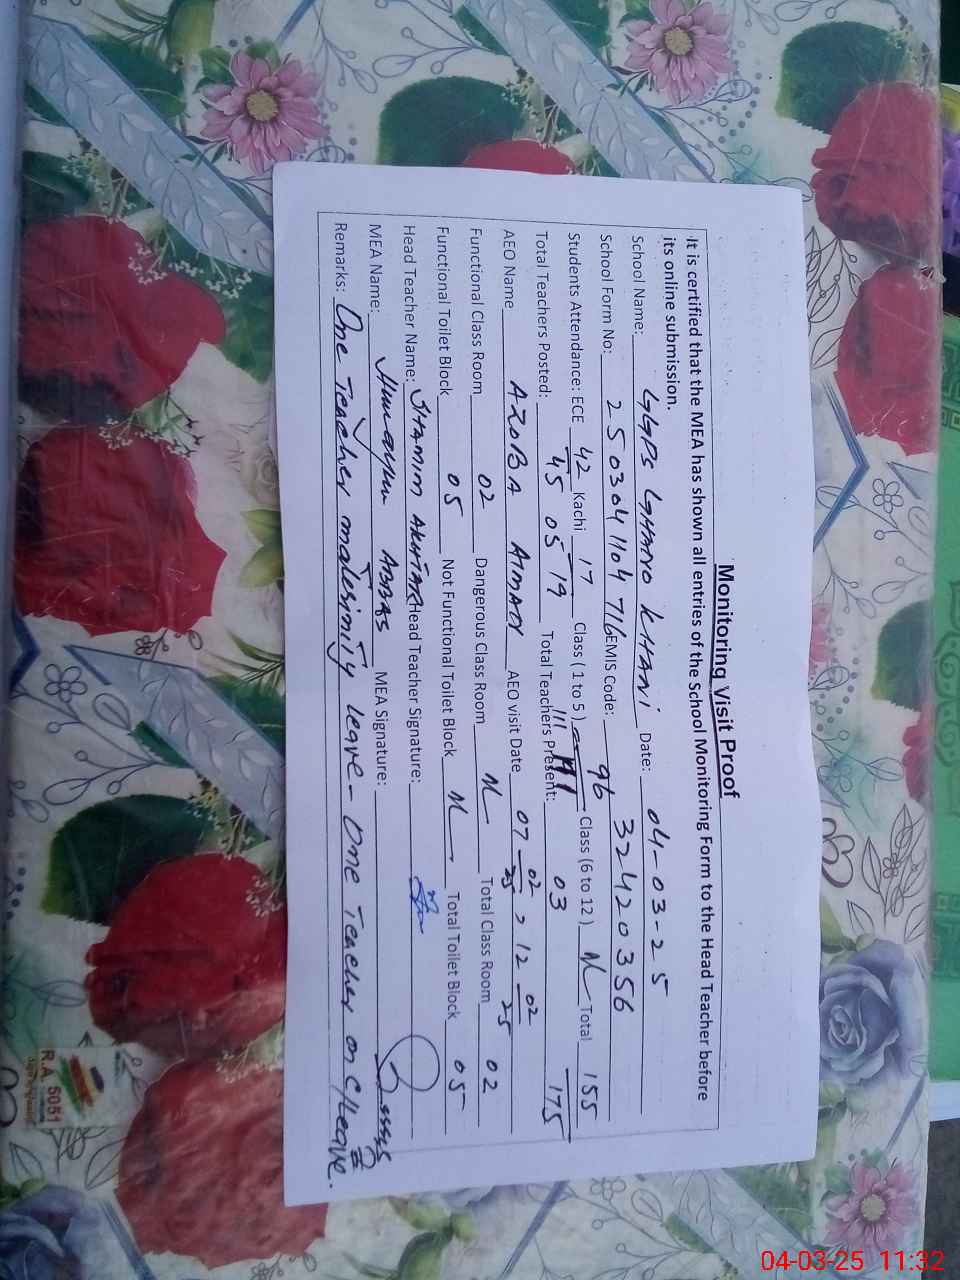 Monitoring Visit Proof
It is certified that the MEA has shown all entries of the School Monitoring Form to the Head Teacher before
its online submission.
School Name: GGPS GHANO KHANI Date: 04-03-25
School Form No: 2503041104716 EMIS Code: 32420356
Students Attendance: ECE 42/45 Kachi 17/19 Class (1 to 5) 96/111 Class (6 to 12) N Total 155/175
Total Teachers Posted: 05 Total Teachers Present: 03
AEO Name AZOBA AIMAN AEO visit Date 07 02/25, 12 02/25
Functional Class Room 02 Dangerous Class Room N Total Class Room 02
Functional Toilet Block 05 Not Functional Toilet Block N Total Toilet Block 05
Head Teacher Name: SHAMIM AKHTAR Head Teacher Signature:
MEA Name: Humayun ABBAS MEA Signature:
Remarks: One Teacher matesinity leave - One Teacher on C/Leave.
R.A 5051
04-03-25 11:32